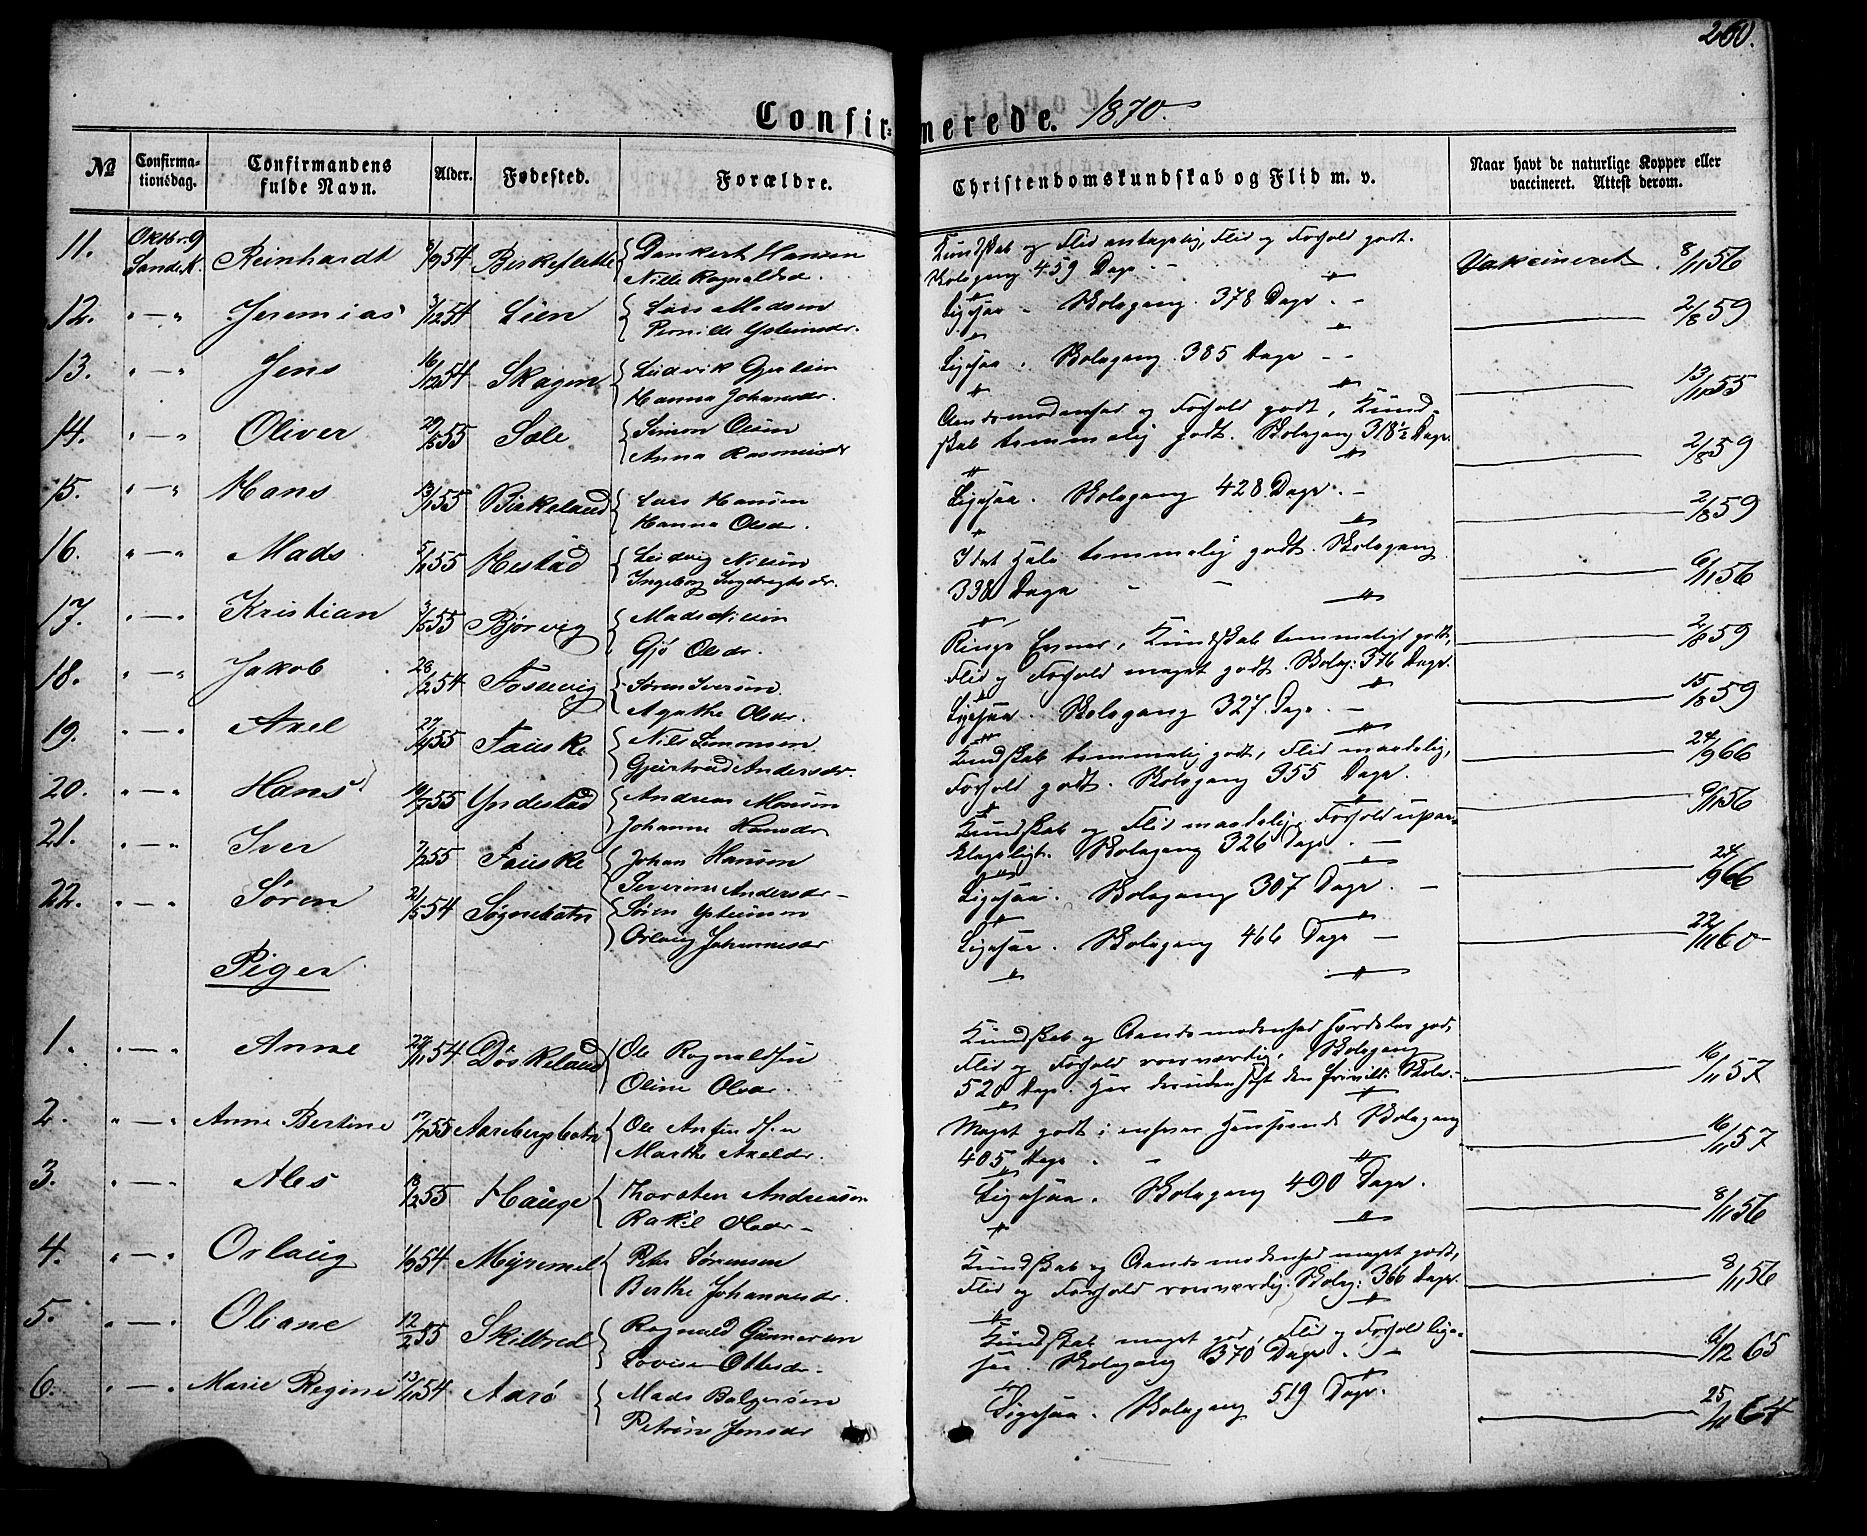 260.
Confirmerede. 1870.
№ Confirmationsdag. Confirmandens fulde Navn. Alder. Fødested. Forældre. Christendomskundskab og Flid m. v. Naar havt de naturlige Kopper eller vaccineret. Attest derom.
11. Oktbr. 9 Sande K. Reinhardt 54 Dankert Hansen
Kundskab og Flid antagelig, Flid og Forhold godt.
Skolegang 459 Dage Vakcineret 8/11 56
12. " — " Jeremias 3/12 54 Lien Lars Madsen
Pernille Ysteinsdr.
Ligesaa. Skolegang. 378 Dage. 2/8 59
13. " — " Jens 16/12 54 Skagen Ludvik Gjertsen
Hanna Johansdr.
Ligesaa. Skolegang 385 Dage 13/11 55
14. " — " Oliver 55 Sæle Simon Olsen
Anna Rasmusdr
Aandsmodenhed og Forhold godt, Kundskab temmelig godt. Skolegang 318½ Dage. 2/8 59
15. " — " Hans 55 Birkeland Lars Hansen
Hanna Olsdr.
Ligesaa. Skolegang 428 Dage. 2/8 59
16. " — " Mads 55 Hestad Ludvig Nilsen
Ingeborg Ingebrigtsdr.
I det Hele temmelig godt. Skolegang
338 Dage 6/11 56
17. " — " Kristian 55 Bjørvig Mads Nilsen
Gjø Olsdr.
Ringe Evner, Kundskab temmeligt godt,
Flid og Forhold meget godt. Skoleg: 376 Dage. 2/8 59
18. " — " Jakob 28/12 54 Fossevig Søren Iversen
Agathe Olsdr.
Ligesaa. Skolegang 327 Dage. 15/8 59
19. " — " Axel 55 Fauske Nils Simonsen
Gjertrud Andersdr.
Kundskab temmelig godt, Flid maadelig,
Forhold godt. Skolegang 355 Dage. 24/9 66
20. " — " Hans 19/7 55 Yndestad Andreas Hansen
Johanne Hansdr
Kundskab og Flid maadelig, Forhold upaaklageligt. Skolegang 326 Dage. 6/11 56
21. " — " Iver 7/2 55 Fauske Johan Hansen
Severine Andersdr
Ligesaa. Skolegang 307 Dage. 24/9 66
22. " — " Søren 21/5 54 Sognebotn Søren Ysteinsen
Orlaug Johannesdr
Ligesaa. Skolegang 466 Dage 22/11 60
Piger
1. " — " Anne 29/11 54 Døskeland Ole Ragnaldsen
Oline Olsdr.
Kundskab og Aandsmodenhed særdeles god,
Flid og Forhold roesværdig. Skolegang
520 Dage. Har desuden søgt den frivill. Skole. 16/11 57
2. " — " Anne Bertine 17/7 55 Aarebergsbotn Ole Anfindsen
Marthe Axeldr.
Meget godt i enhver Henseende Skolegang
405 Dage 16/11 57
3. " — " Ales 18/2 55 Hauge Thorsten Andreassen
Rakel Olsdr
Ligesaa. Skolegang 490 Dage. 8/11 56
4. " — " Orlaug 1/9 54 Myremel Peter Sørensen
Berthe Johannesdr.
Kundskab og Aandsmodenhed meget godt,
Flid og Forhold roesværdig. Skoleg: 366 Dage. 8/11 56
5. " — " Oliane 12/2 55 Skilbred Ragnald Gunnarsen
Lovise Ottesdr.
Kundskab meget god, Flid og Forhold ligesaa. Skolegang 370 Dage. 6/12 65
6. " — " Marie Regine 54 Aarø Mads Bolgersøn
Petrine Jensdr
Ligesaa. Skolegang 519 Dage. 64